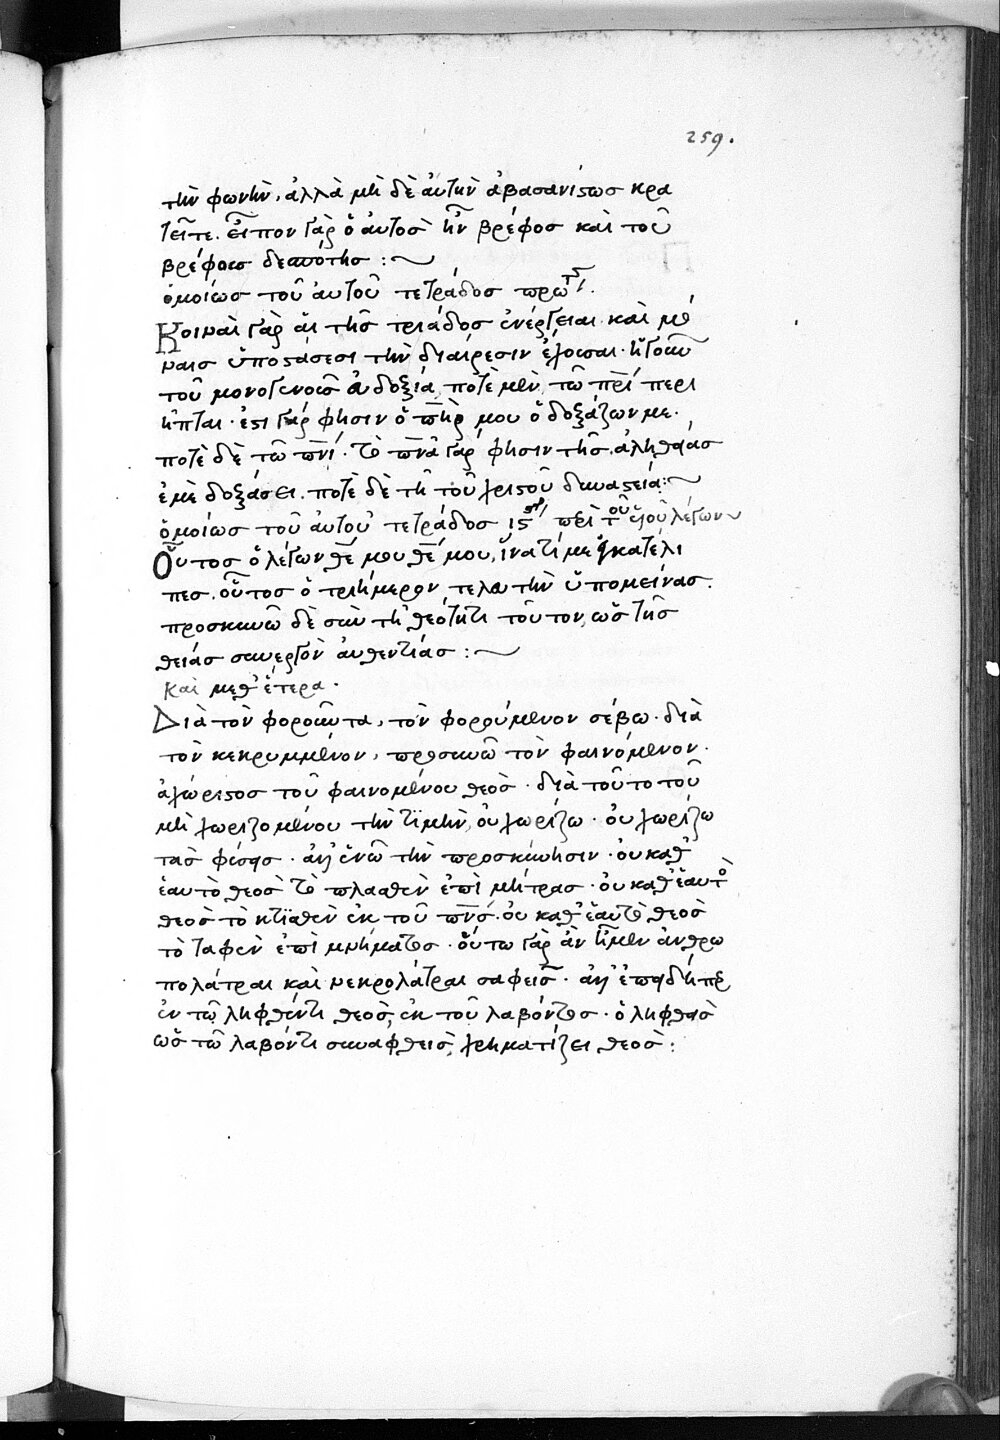 259.
τὴν φωνὴν, ἀλλὰ μὴ δὲ ἀυτὴν ἀβασανίστωσ κρα
τεῖτε. εἶπον γὰρ ὁ ἀυτὸσ ἦν βρέφοσ καὶ τοῦ
βρέφουσ δεσπότησ :~
ὁμοίωσ τοῦ ἀυτοῦ τετράδοσ πρώτησ.
Κοιναὶ γὰρ ἁι τῆσ τριάδοσ ἐνέργειαι καὶ μό
ναισ ὑποστάσεσι τὴν διαίρεσιν ἔχουσαι· ἡ γοῦν
τοῦ μονογενοῦσ ἐυδοξία, ποτὲ μὲν, τῶ πρ̅ὶ περι
ῆπται· ἔστι γάρ φησιν ὁ πη̅ρ μου ὁ δοξάζων με.
ποτὲ δὲ τῶ πν̅ι· τὸ πν̅α γάρ φησιν τῆσ ἀληθείασ
ἐμὲ δοξάσει. ποτὲ δὲ τῆ τοῦ χριστοῦ δυναστεία:~
ὁμοίωσ τοῦ ἀυτοῦ τετράδοσ ιε περὶ τοῦ χ̅υ λέγων
Οὗτοσ ὁ λέγων θέ μου θέ μου, ἵνατί με ἐγκατέλι
πεσ. οὗτοσ ὁ τριήμερον τελευτὴν ὑπομείνασ.
προσκυνῶ δὲ σὺν τῆ θεότητι τοῦτον, ὡσ τῆσ
θείασ συνεργὸν ἀυθεντίασ :~
καὶ μεθ' ἕτερα.
Διὰ τὸν φοροῦντα, τὸν φορούμενον σέβω. διὰ
τὸν κεκρυμμένον, προσκυνῶ τὸν φαινόμενον.
ἀχώριστοσ τοῦ φαινομένου θεόσ. διὰ τοῦτο τοῦ
μὴ χωριζομένου τὴν τιμὴν, ὀυ χωρίζω. ὀυ χωρίζω
τὰσ φύσεισ. ἀλλ' ἑνῶ τὴν προσκύνησιν. ὀυ καθ'
ἑαυτὸ θεὸσ τὸ πλασθὲν ἐπὶ μήτρασ. ὀυ καθ' ἑαυτὸ
θεὸσ τὸ κτϊσθὲν ἐκ τοῦ πν̅σ. ὀυ καθ' ἑαυτὸ θεὸσ
τὸ ταφὲν ἐπὶ μνήματοσ. ὅυτω γὰρ ἂν ἦμεν ἀνθρω
πολάτραι καὶ νεκρολάτραι σαφεῖσ. ἀλλ' ἐπειδήπερ
ἐν τῶ ληφθέντι θεὸσ, ἐκ τοῦ λαβόντοσ. ὁ ληφθεὶσ
ὡσ τῶ λαβόντι συναφθεὶσ, χρηματίζει θεόσ :